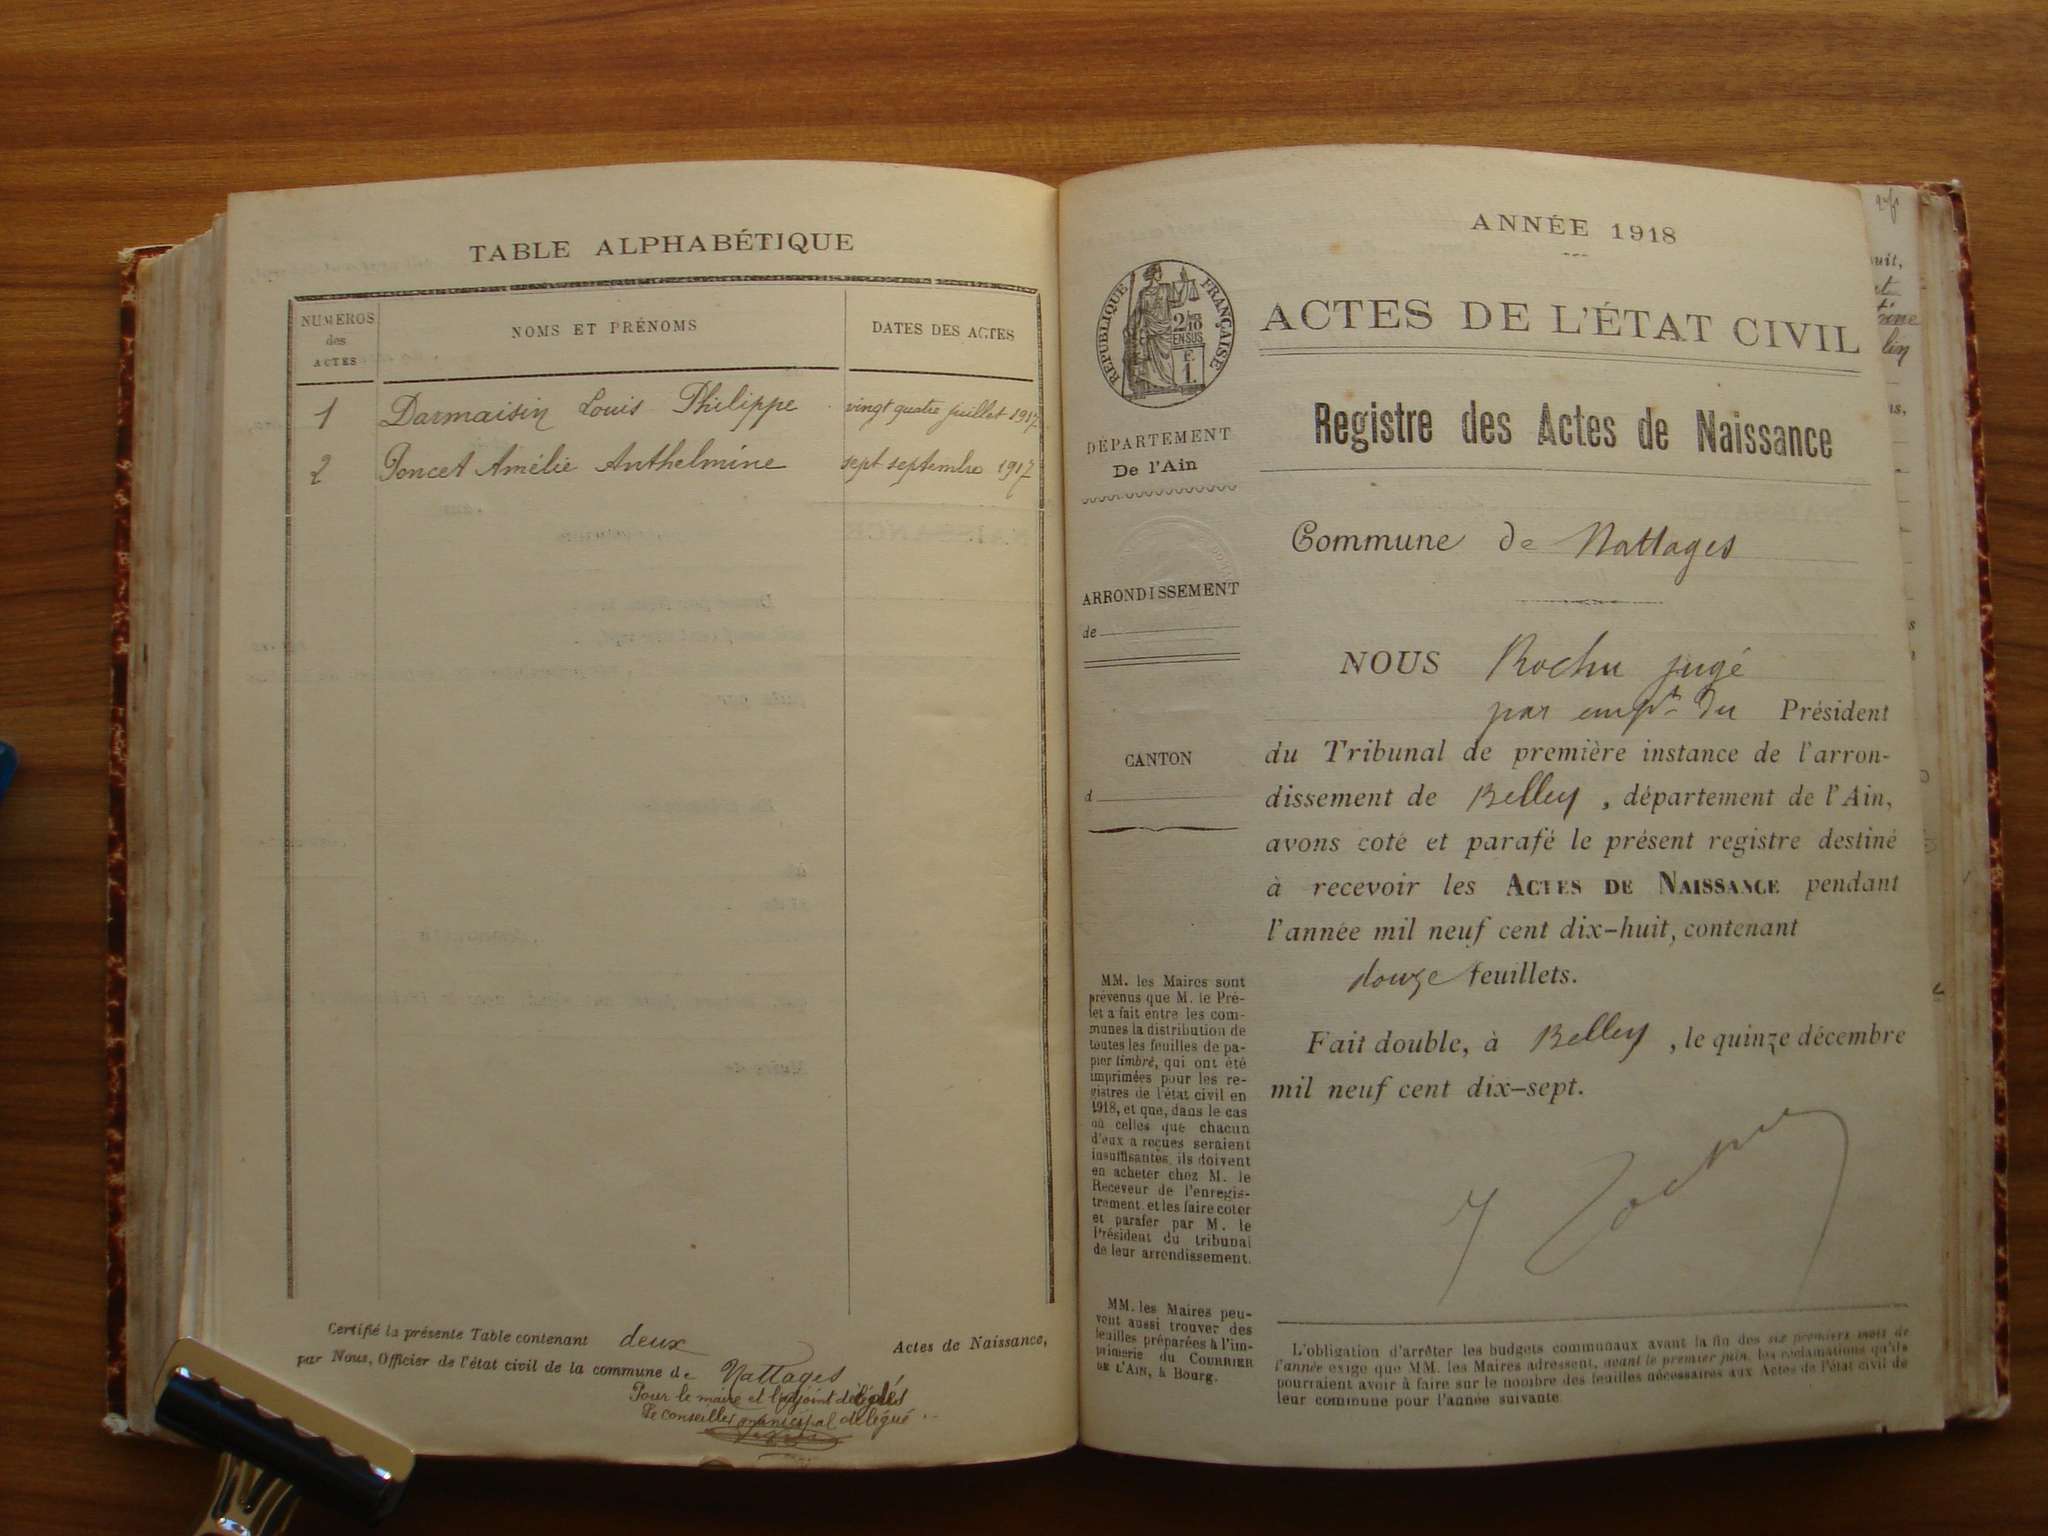 TABLE ALPHABÉTIQUE
NUMÉROS
des
ACTES
NOMS ET PRÉNOMS
DATES DES ACTES
1 Darmaisin Louis Philippe vingt quatre juillet 1917
2 Poncet Amélie Anthelmine sept septembre 1917
Certifié la présente Table contenant deux Actes de Naissance,
par Nous, Officier de l'état civil de la commune de Nattages
Pour le maire et l'adjoint délégués
Le conseiller municipal délégué
ANNÉE 1918
RÉPUBLIQUE FRANÇAISE
2/10
EN SUS
F.
1.
ACTES DE L'ÉTAT CIVIL
Registre des Actes de Naissance
DÉPARTEMENT
De l'Ain
ARRONDISSEMENT
de
CANTON
d
Commune de Nattages
NOUS Rochu jugé
par empt du Président
du Tribunal de première instance de l'arron-
dissement de Belley, département de l'Ain,
avons coté et parafé le présent registre destiné
à recevoir les ACTES DE NAISSANCE pendant
l'année mil neuf cent dix-huit, contenant
douze feuillets.
Fait double, à Belley, le quinze décembre
mil neuf cent dix-sept.
MM. les Maires sont
prévenus que M. le Pré-
fet a fait entre les com-
munes la distribution de
toutes les feuilles de pa-
pier timbré, qui ont été
imprimées pour les re-
gistres de l'état civil en
1918, et que, dans le cas
où celles que chacun
d'eux a reçues seraient
insuffisantes, ils doivent
en acheter chez M. le
Receveur de l'enregis-
trement, et les faire coter
et parafer par M. le
Président du tribunal
de leur arrondissement.
MM. les Maires peu-
vent aussi trouver des
feuilles préparées à l'im-
primerie du COURRIER
DE L'AIN, à Bourg.
L'obligation d'arrêter les budgets communaux avant la fin des six premiers mois de
l'année exige que MM. les Maires adressent, avant le premier juin, les réclamations qu'ils
pourraient avoir à faire sur le nombre des feuilles nécessaires aux Actes de l'état civil de
leur commune pour l'année suivante.